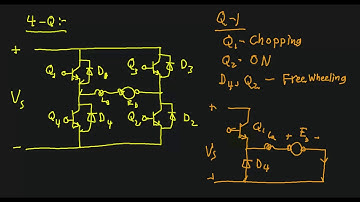 4-Q:-
+
Q3
D3
Q3
D3
Vs
La
Eb
Q4
D4
Q2
D2
-
Q-1
Q1 - Chopping
Q2 - ON
D4, Q2 - Free Wheeling
+
Q1
La
+
Eb
-
Vs
D4
-